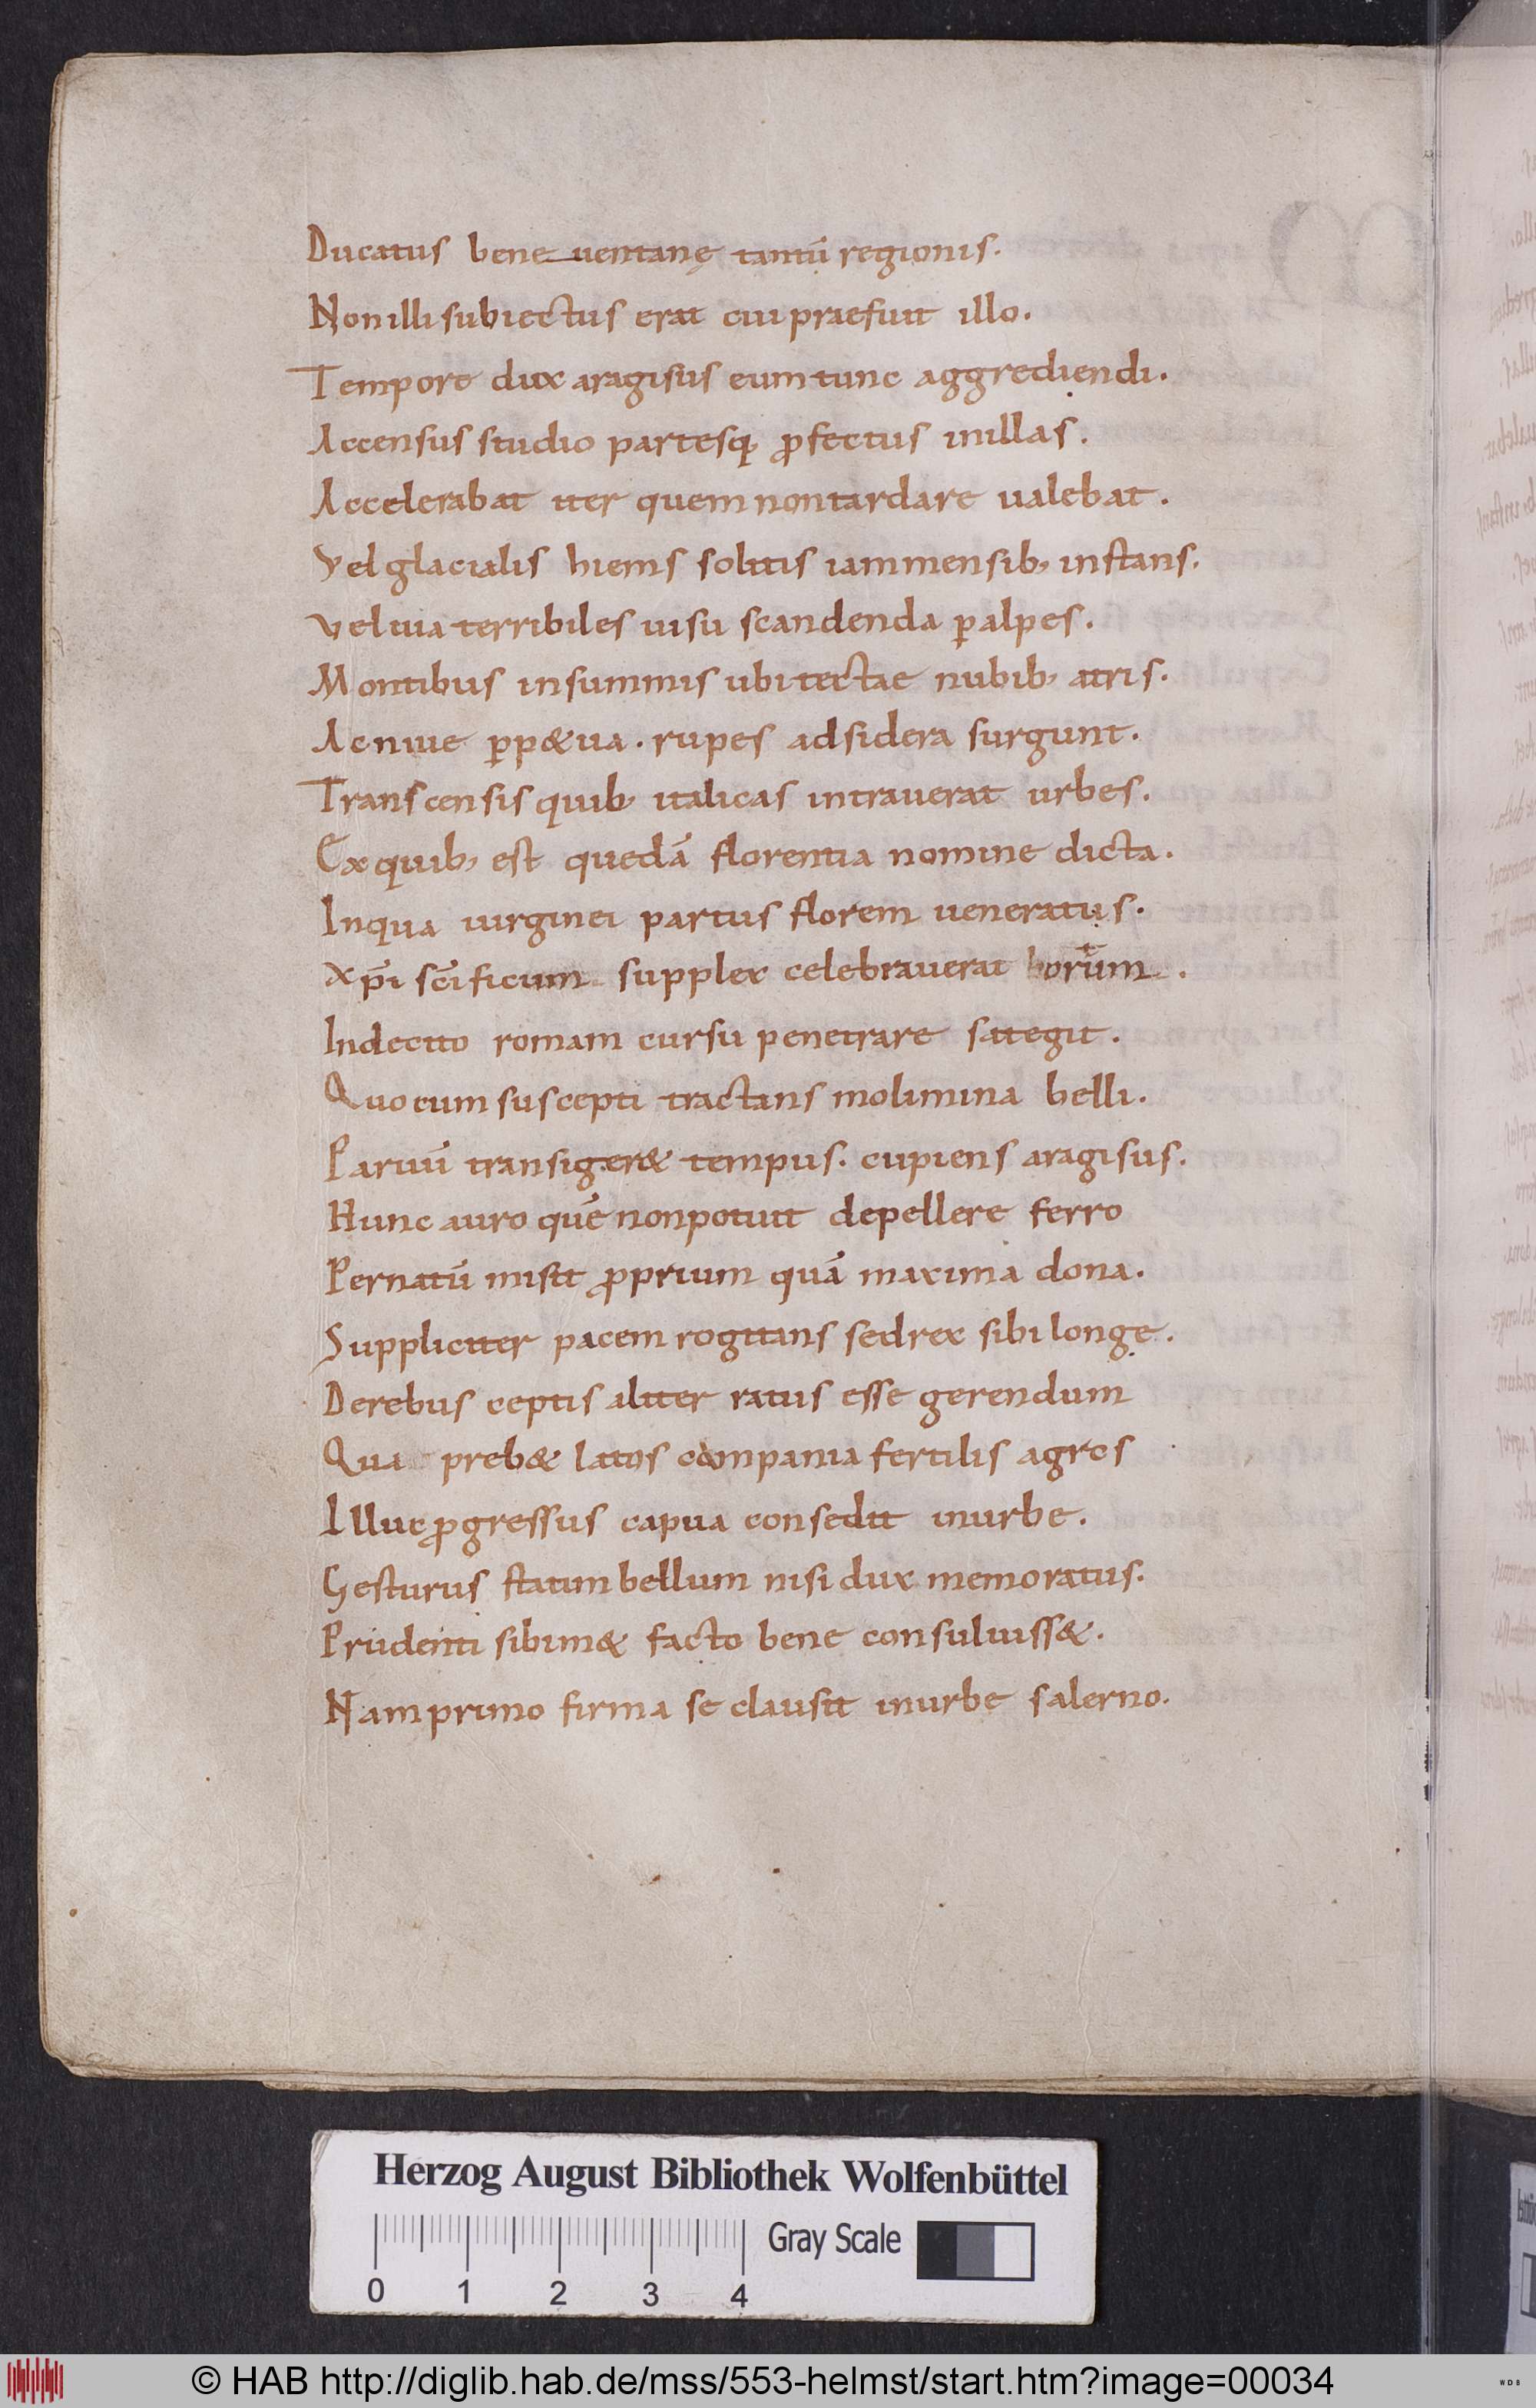 Ducatus bene uentanę tantū regionis.
Non illi subiectus erat cui praefuit illo.
Tempore dux aragisus eum tunc aggrediendi.
Accensus studio partesq; ꝓfectus in illas.
Accelerabat iter quem non tardare ualebat.
Vel glacialis hiems solitis iam mensib; instans.
Vel uia terribiles uisu scandenda ꝑ alpes.
Montibus in summis ubi tectae nubib; atris.
Ac niue ꝑp&ua. rupes ad sidera surgunt.
Transcensis quib; italicas intrauerat urbes.
Ex quib; est quedā florentia nomine dicta.
In qua uirginei partus florem ueneratus.
Xp̄i sc̄ificum supplex celebrauerat ortum.
Inde cito romam cursu penetrare sategit.
Quo cum suscepti tractans molimina belli.
Paruū transiger& tempus. cupiens aragisus.
Hunc auro quē non potuit depellere ferro
Per natū misit ꝓprium quā maxima dona.
Suppliciter pacem rogitans sed rex sibi longe.
De rebus ceptis aliter ratus esse gerendum
Qua preb& latos compania fertilis agros
Illuc ꝓgressus capua consedit in urbe.
Gesturus statim bellum nisi dux memoratus.
Prudenti sibim& facto bene consuluiss&.
Nam primo firma se clausit in urbe salerno.
Herzog August Bibliothek Wolfenbüttel
Gray Scale
0 1 2 3 4
© HAB http://diglib.hab.de/mss/553-helmst/start.htm?image=00034